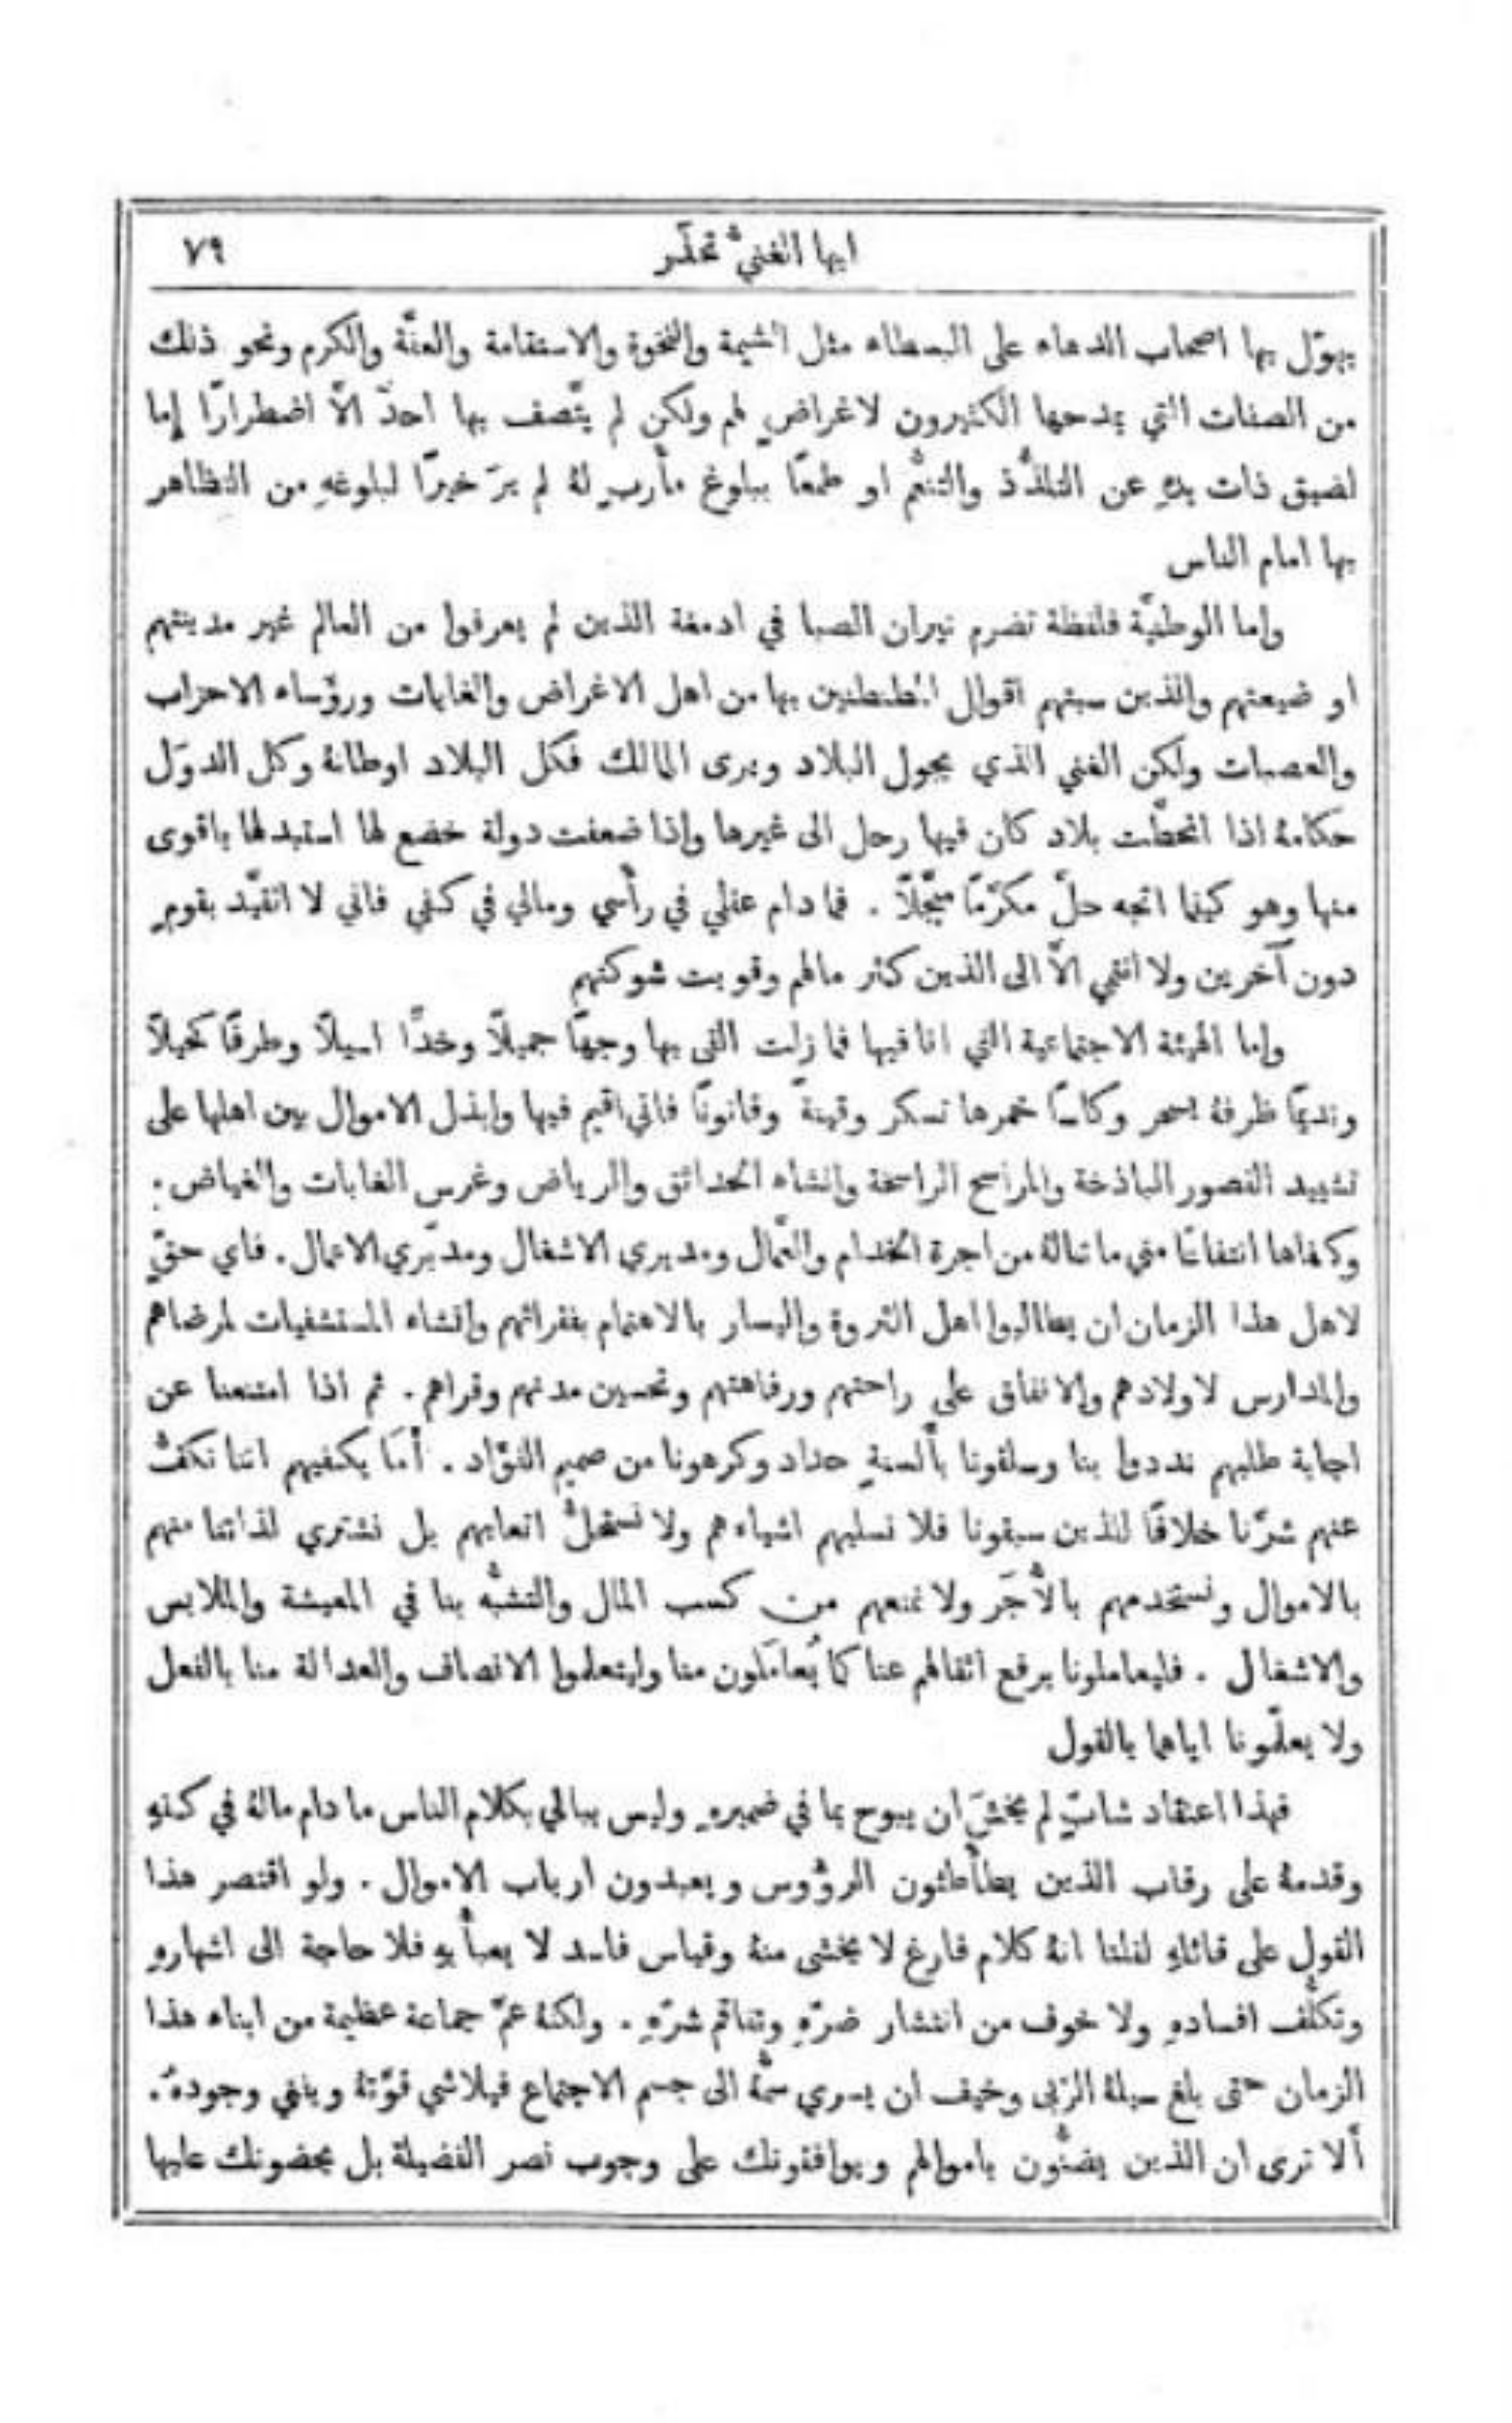 ايها الغنيُّ تحذَّر ٧٩
يهوّل بها اصحاب الدهاء على البسطاء مثل الشيمة والنخوة والاستقامة والعفَّة والكرم ونحو ذلك
من الصفات التي يمدحها الكثيرون لاغراضٍ لهم ولكن لم يتَّصف بها احدٌ الَّا اضطرارًا إما
لضيق ذات يدهِ عن التلذُّذ والتنعُّم او طمعًا ببلوغ مأربٍ لهُ لم يرَ خيرًا لبلوغهِ من التظاهر
بها امام الناس
واما الوطنيَّة فلفظة تضرم نيران الصبا في ادمغة الذين لم يعرفوا من العالم غير مدينتهم
او ضيعتهم والذين سبتهم اقوال المطنطنين بها من اهل الاغراض والغايات ورؤساء الاحزاب
والعصبات ولكن الغني الذي يجول البلاد ويرى المالك فكل البلاد اوطانهُ وكل الدوَل
حكامهُ اذا انحطَّت بلاد كان فيها رحل الى غيرها واذا ضعفت دولة خضع لها استبدلها باقوى
منها وهو كيفما اتجه حلَّ مكرَّمًا مبجَّلًا . فما دام عقلي في رأسي ومالي في كفي فاني لا اتقيَّد بقومٍ
دون آخرين ولا انتمي الَّا الى الذين كثر مالهم وقويت شوكتهم
واما الهيئة الاجتماعية التي انا فيها فما زلت القى بها وجهًا جميلًا وخدًّا اسيلًا وطرفًا كحيلًا
ونديمًا ظرفهُ يسحر وكاسًا خمرها تسكر وقينةً وقانونًا فاني اقيم فيها وابذل الاموال بين اهلها على
تشييد القصور الباذخة والمراسح الراسخة وانشاء الحدائق والرياض وغرس الغابات والغياض .
وكفاها انتفاعًا مني ما تنالهُ من اجرة الخدام والعمَّال ومديري الاشغال ومدبّري الاعمال . فاي حقٍّ
لاهل هذا الزمان ان يطالبوا اهل الثروة واليسار بالاهتمام بفقرائهم وانشاء المستشفيات لمرضاهم
والمدارس لاولادهم والانفاق على راحتهم ورفاهتهم وتحسين مدنهم وقراهم . ثم اذا امتنعنا عن
اجابة طلبهم نددوا بنا وسلقونا بألسنةٍ حداد وكرهونا من صميم الفؤاد . أَمَا يكفيهم اننا نكفُّ
عنهم شرَّنا خلافًا للذين سبقونا فلا نسلبهم اشياءهم ولا نستحلُّ اتعابهم بل نشتري لذاتنا منهم
بالاموال ونستخدمهم بالأُجَر ولا نمنعهم من كسب المال والتشبُّه بنا في المعيشة والملابس
والاشغال . فليعاملونا برفع اثقالهم عنا كما يُعامَلون منا وليتعلموا الانصاف والعدالة منا بالفعل
ولا يعلّمونا اياهما بالقول
فهذا اعتقاد شابٍّ لم يخشَ ان يبوح بما في ضميرهِ وليس يبالي بكلام الناس ما دام مالهُ في كفهِ
وقدمهُ على رقاب الذين يطأطئون الرؤُوس ويعبدون ارباب الاموال . ولو اقتصر هذا
القول على قائلهِ لقلنا انهُ كلام فارغ لا يخشى منهُ وقياس فاسد لا يعبأُ بهِ فلا حاجة الى اشهارهِ
وتكلُّف افسادهِ ولا خوف من انتشار ضرّهِ وتفاقم شرّهِ . ولكنهُ عمَّ جماعة عظيمة من ابناء هذا
الزمان حتى بلغ سيلهُ الزبى وخيف ان يسري سمُّهُ الى جسم الاجتماع فيلاشي قوَّتهُ ويفني وجودهُ .
أَلا ترى ان الذين يضنُّون باموالهم ويوافقونك على وجوب نصر الفضيلة بل يحضونك عليها